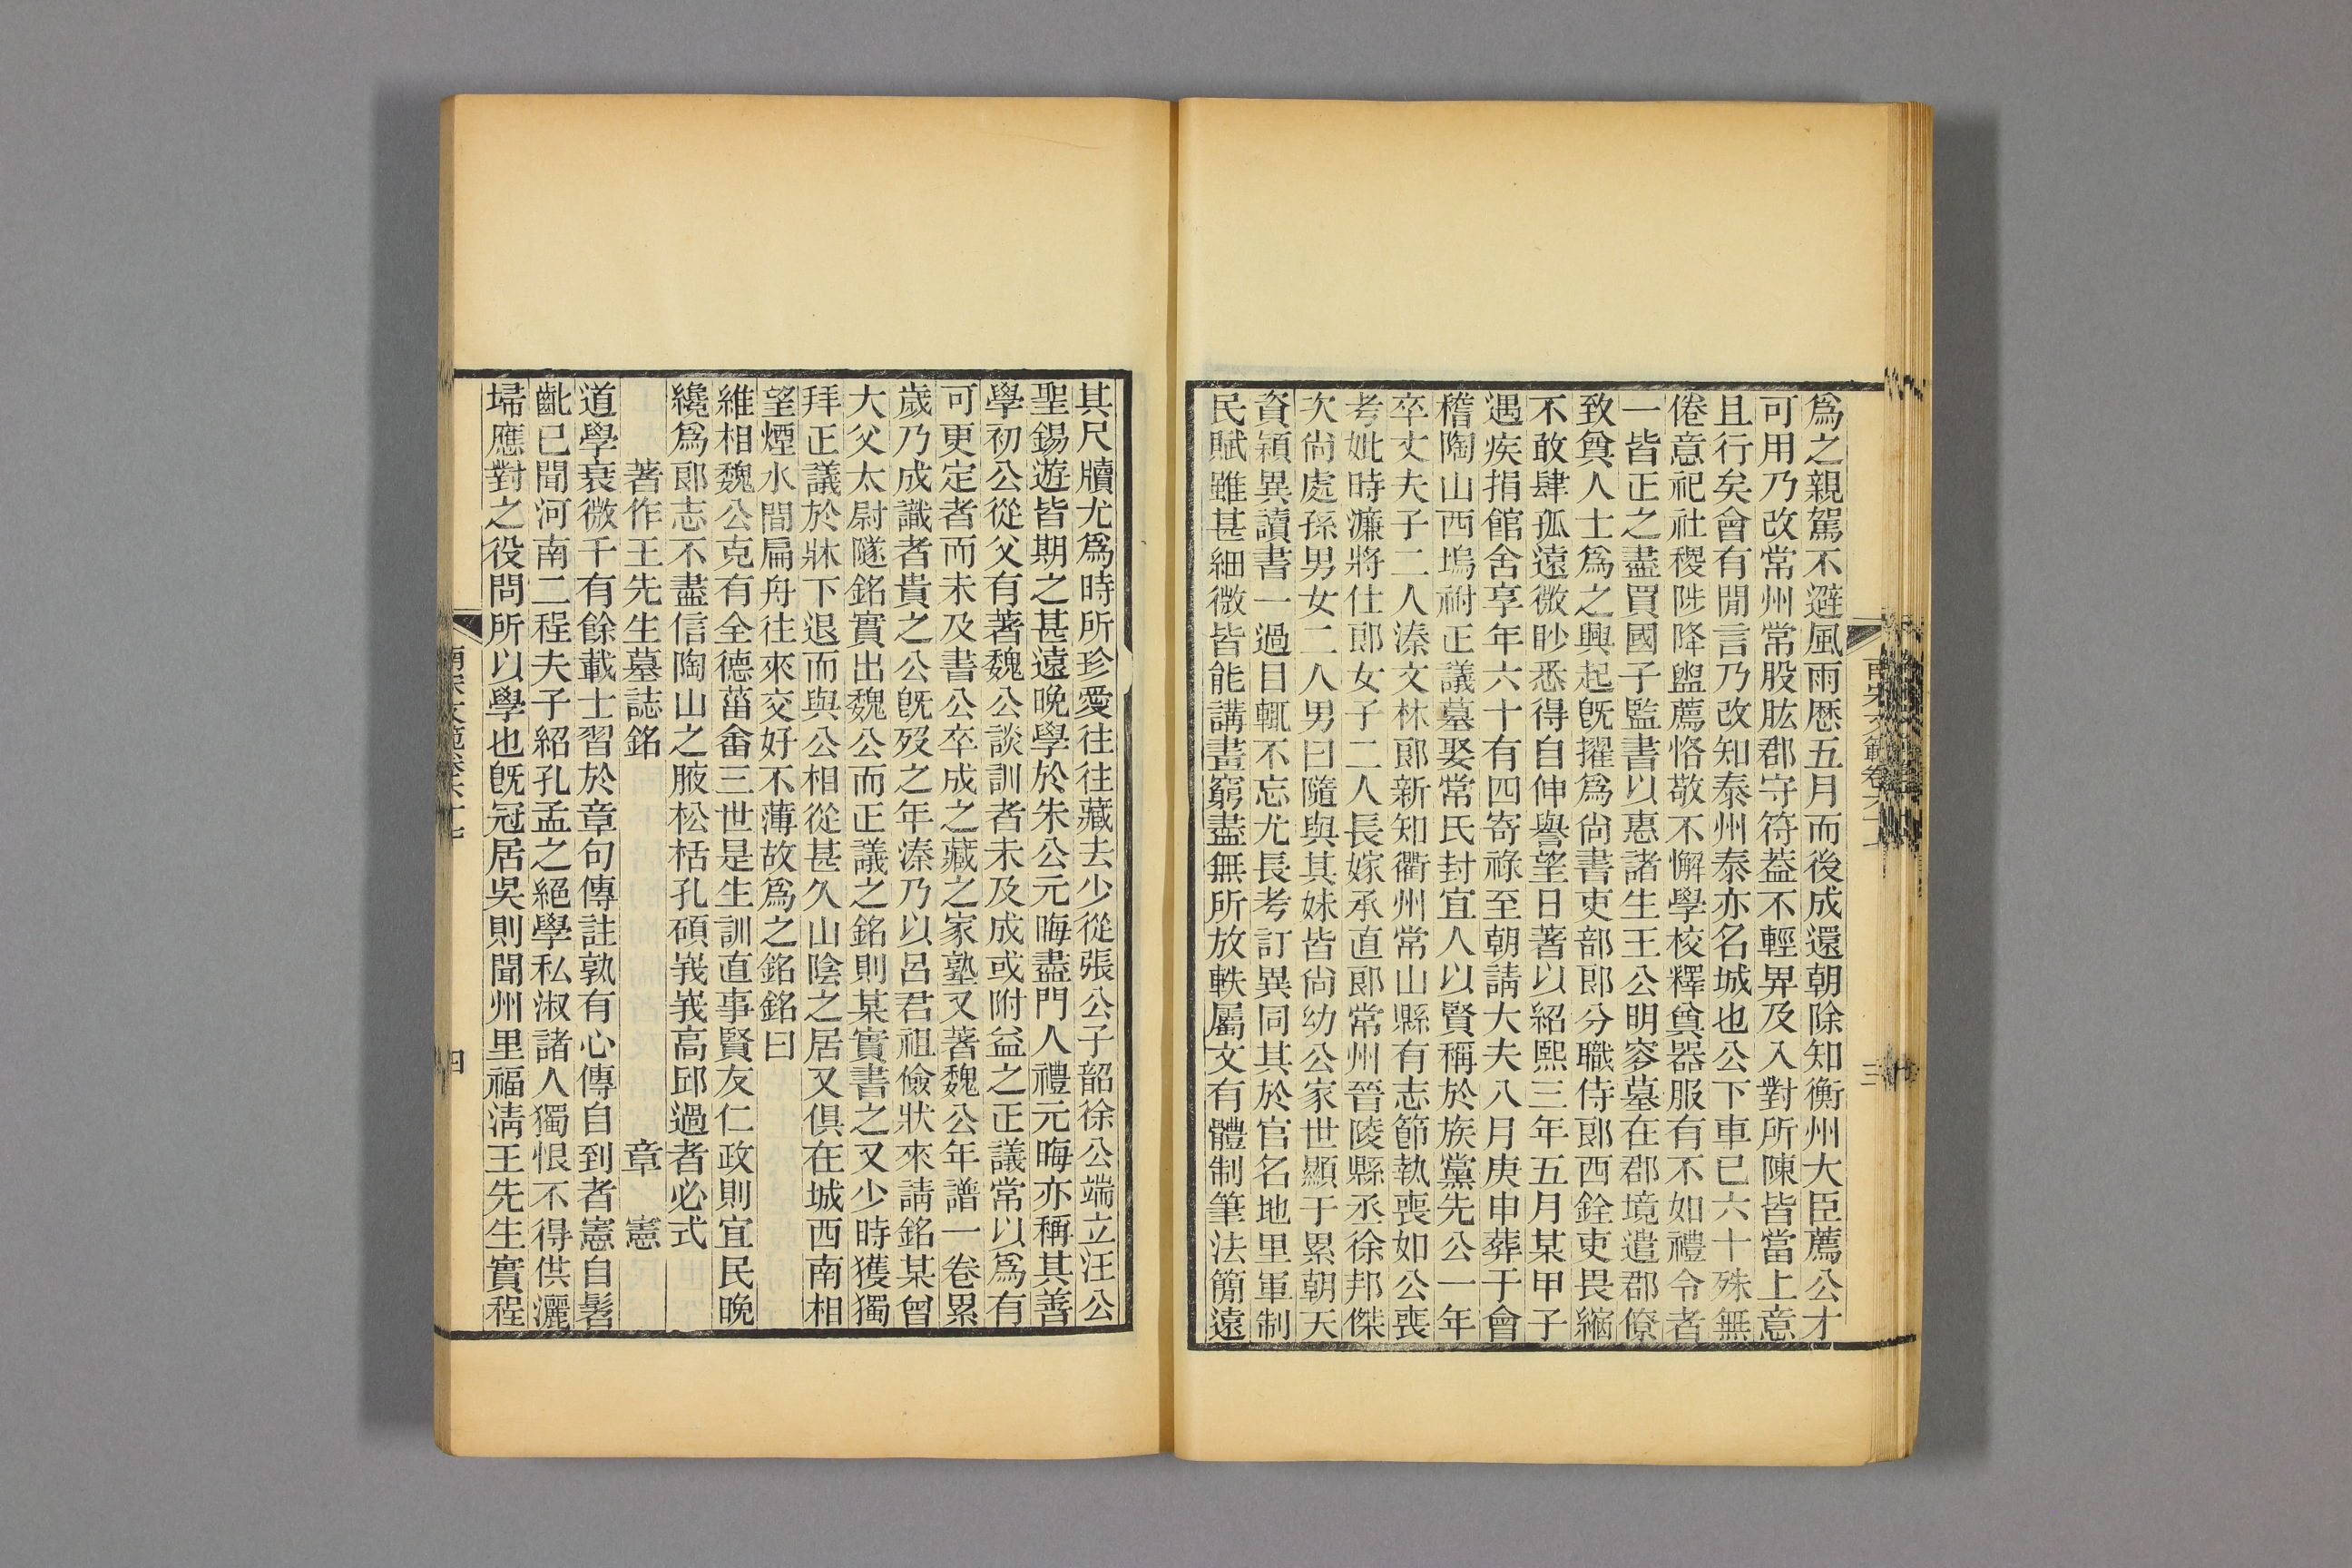 爲之親駕不避風雨歷五月而後成還朝除知衡州大臣薦公才
可用乃改常州常股肱郡守符葢不輕畀及入對所陳皆當上意
且行矣會有閒言乃改知泰州泰亦名城也公下車已六十殊無
倦意祀社稷陟降盥薦恪敬不懈學校釋奠器服有不如禮令者
一皆正之盡買國子監書以惠諸生王公明窆墓在郡境遣郡僚
致奠人士爲之興起旣擢爲尙書吏部郎分職侍郎西銓吏畏縮
不敢肆孤遠微眇悉得自伸譽望日著以紹熙三年五月某甲子
遇疾捐館舍享年六十有四寄祿至朝請大夫八月庚申葬于會
稽陶山西塢祔正議墓娶常氏封宜人以賢稱於族黨先公一年
卒丈夫子二人溱文林郎新知衢州常山縣有志節執喪如公喪
考妣時濂將仕郎女子二人長嫁承直郎常州晉陵縣丞徐邦傑
次尙處孫男女二人男曰隨與其妹皆尙幼公家世顯于累朝天
資穎異讀書一過目輒不忘尤長考訂異同其於官名地里軍制
民賦雖甚細微皆能講畫窮盡無所放軼屬文有體制筆法簡遠
南宋文範卷六十七
三
其尺牘尤爲時所珍愛往往藏去少從張公子韶徐公端立汪公
聖錫遊皆期之甚遠晚學於朱公元晦盡門人禮元晦亦稱其善
學初公從父有著魏公談訓者未及成或附益之正議常以爲有
可更定者而未及書公卒成之藏之家塾又著魏公年譜一卷累
歲乃成識者貴之公旣歿之年溱乃以呂君祖儉狀來請銘某曾
大父太尉隧銘實出魏公而正議之銘則某實書之又少時獲獨
拜正議於牀下退而與公相從甚久山陰之居又俱在城西南相
望煙水間扁舟往來交好不薄故爲之銘銘曰
維相魏公克有全德菑畬三世是生訓直事賢友仁政則宜民晚
纔爲郎志不盡信陶山之腋松栝孔碩峩峩高邱過者必式
著作王先生墓誌銘　章　憲
道學衰微千有餘載士習於章句傳註孰有心傳自到者憲自髫
齔已聞河南二程夫子紹孔孟之絕學私淑諸人獨恨不得供灑
埽應對之役問所以學也旣冠居吳則聞州里福淸王先生實程
南宋文範卷六十七
四